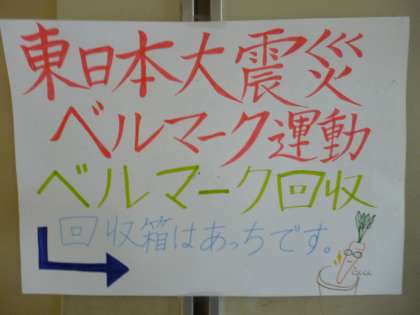 東日本大震災
ベルマーク運動
ベルマーク回収
回収箱はあっちです。